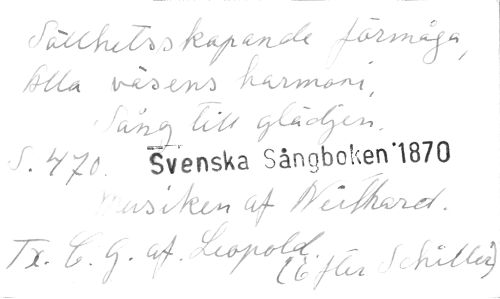 Sällhetsskapande förmåga,
Alla väsens harmoni,
Sång till glädjen.
S. 470. Svenska Sångboken 1870
Musiken af Neithard.
Tx. C. G. af. Leopold.
(Efter Schiller)